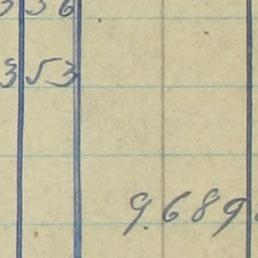 336
353
9.689